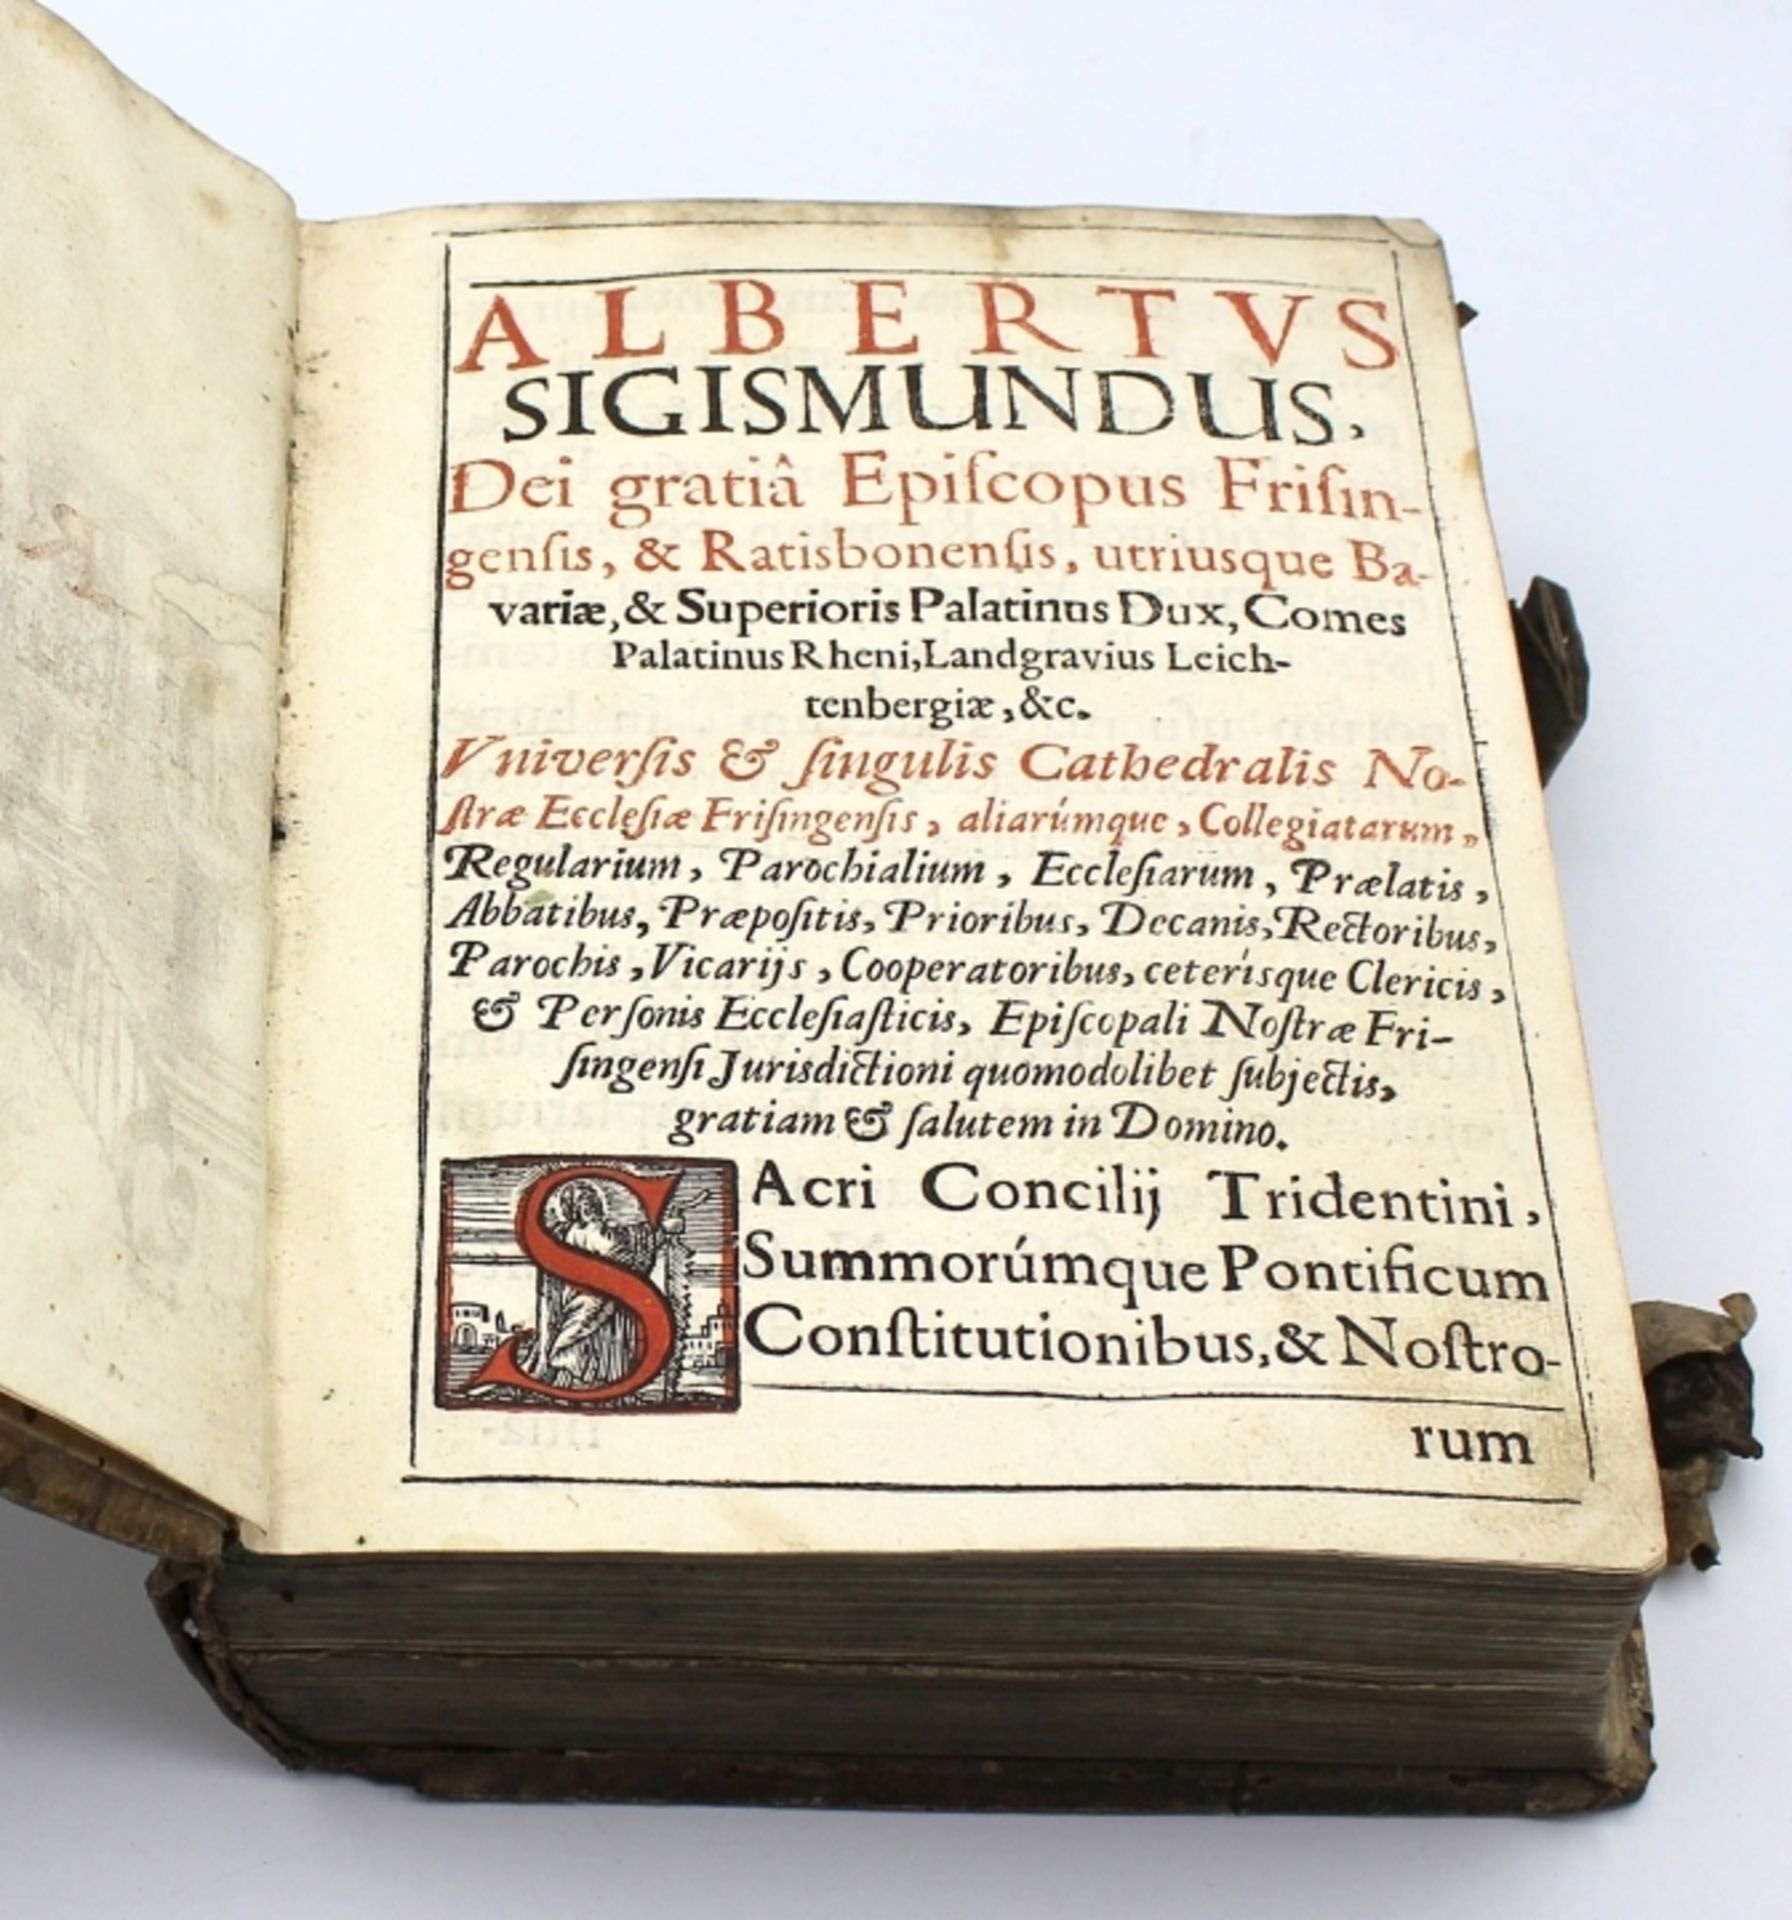 ALBERTVS
SIGISMUNDUS,
Dei gratiâ Epiſcopus Friſin-
genſis, & Ratisbonenſis, utriusque Ba-
variæ, & Superioris Palatinus Dux, Comes
Palatinus Rheni, Landgravius Leich-
tenbergiæ, &c.
Vniverſis & ſingulis Cathedralis No-
ſtræ Eccleſiæ Friſingenſis, aliarúmque, Collegiatarum,
Regularium, Parochialium, Eccleſiarum, Prælatis,
Abbatibus, Præpoſitis, Prioribus, Decanis, Rectoribus,
Parochis, Vicarijs, Cooperatoribus, ceterísque Clericis,
& Perſonis Eccleſiaſticis, Epiſcopali Noſtræ Fri-
ſingenſi Jurisdictioni quomodolibet ſubjectis,
gratiam & ſalutem in Domino.
SAcri Concilij Tridentini,
Summorúmque Pontificum
Conſtitutionibus, & Noſtro-
rum